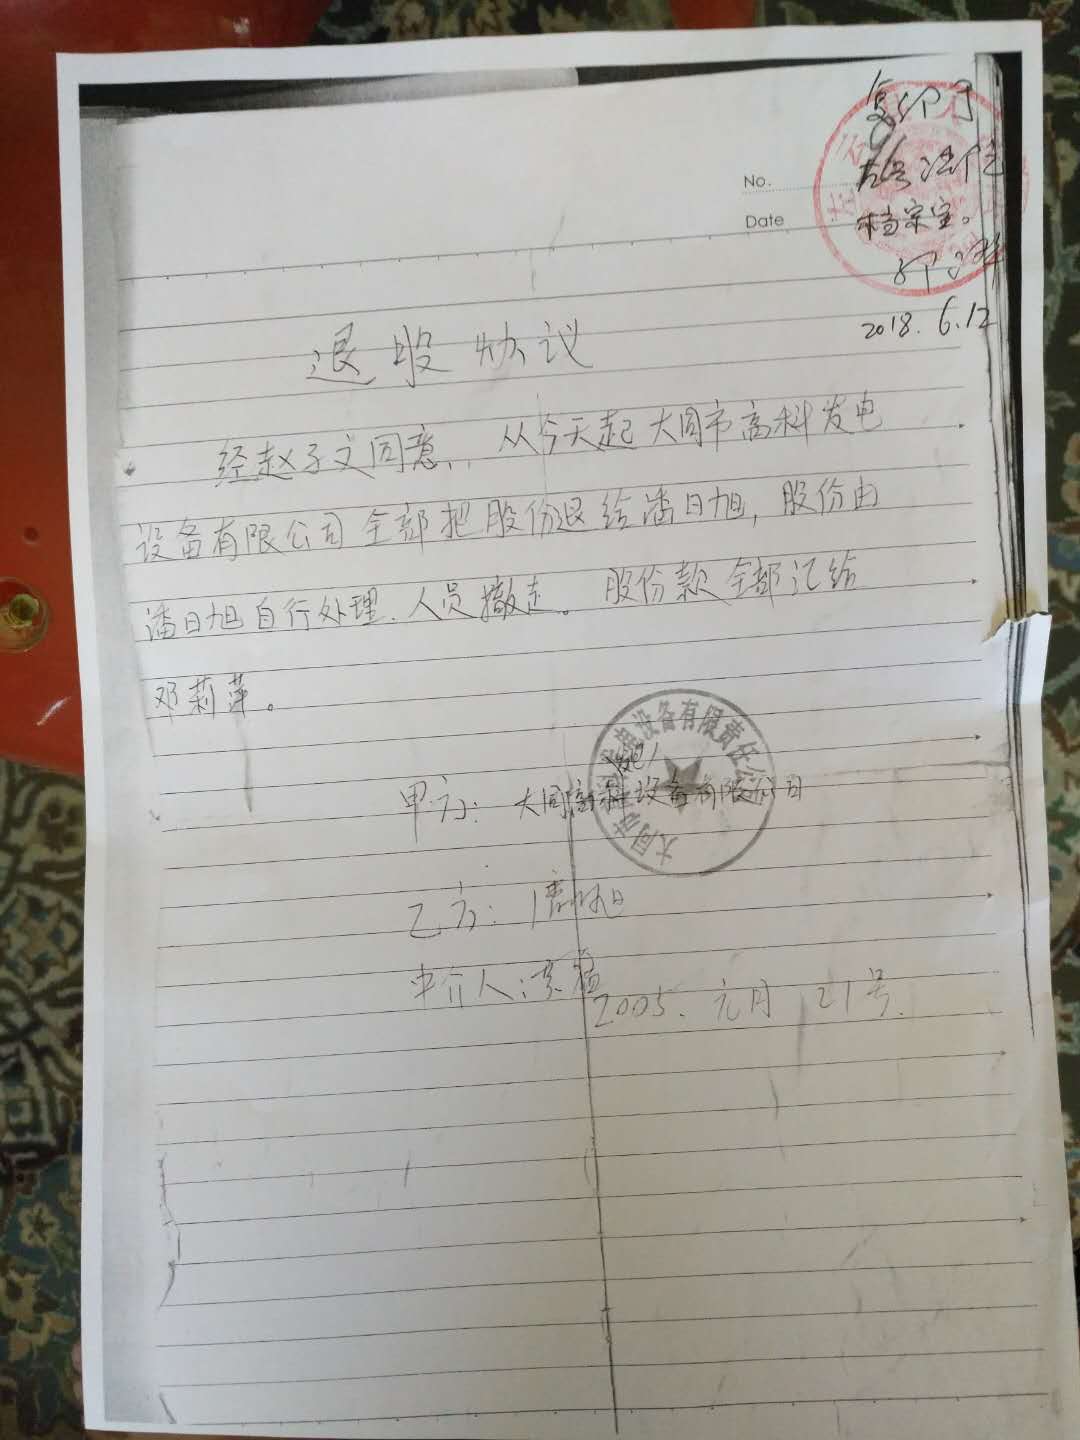 复印于
档案室。
2018.6.12
No.
Date
退股协议
经赵子文同意, 从今天起大同市高科发电
设备有限公司全部把股份退给潘日旭, 股份由
潘日旭自行处理.人员撤走。股份款全部汇给
邓莉萍。
甲方: 大同高科发电设备有限公司
大同市高科发电设备有限责任公司
乙方: 潘日旭
中介人:
2005. 元月 21号.